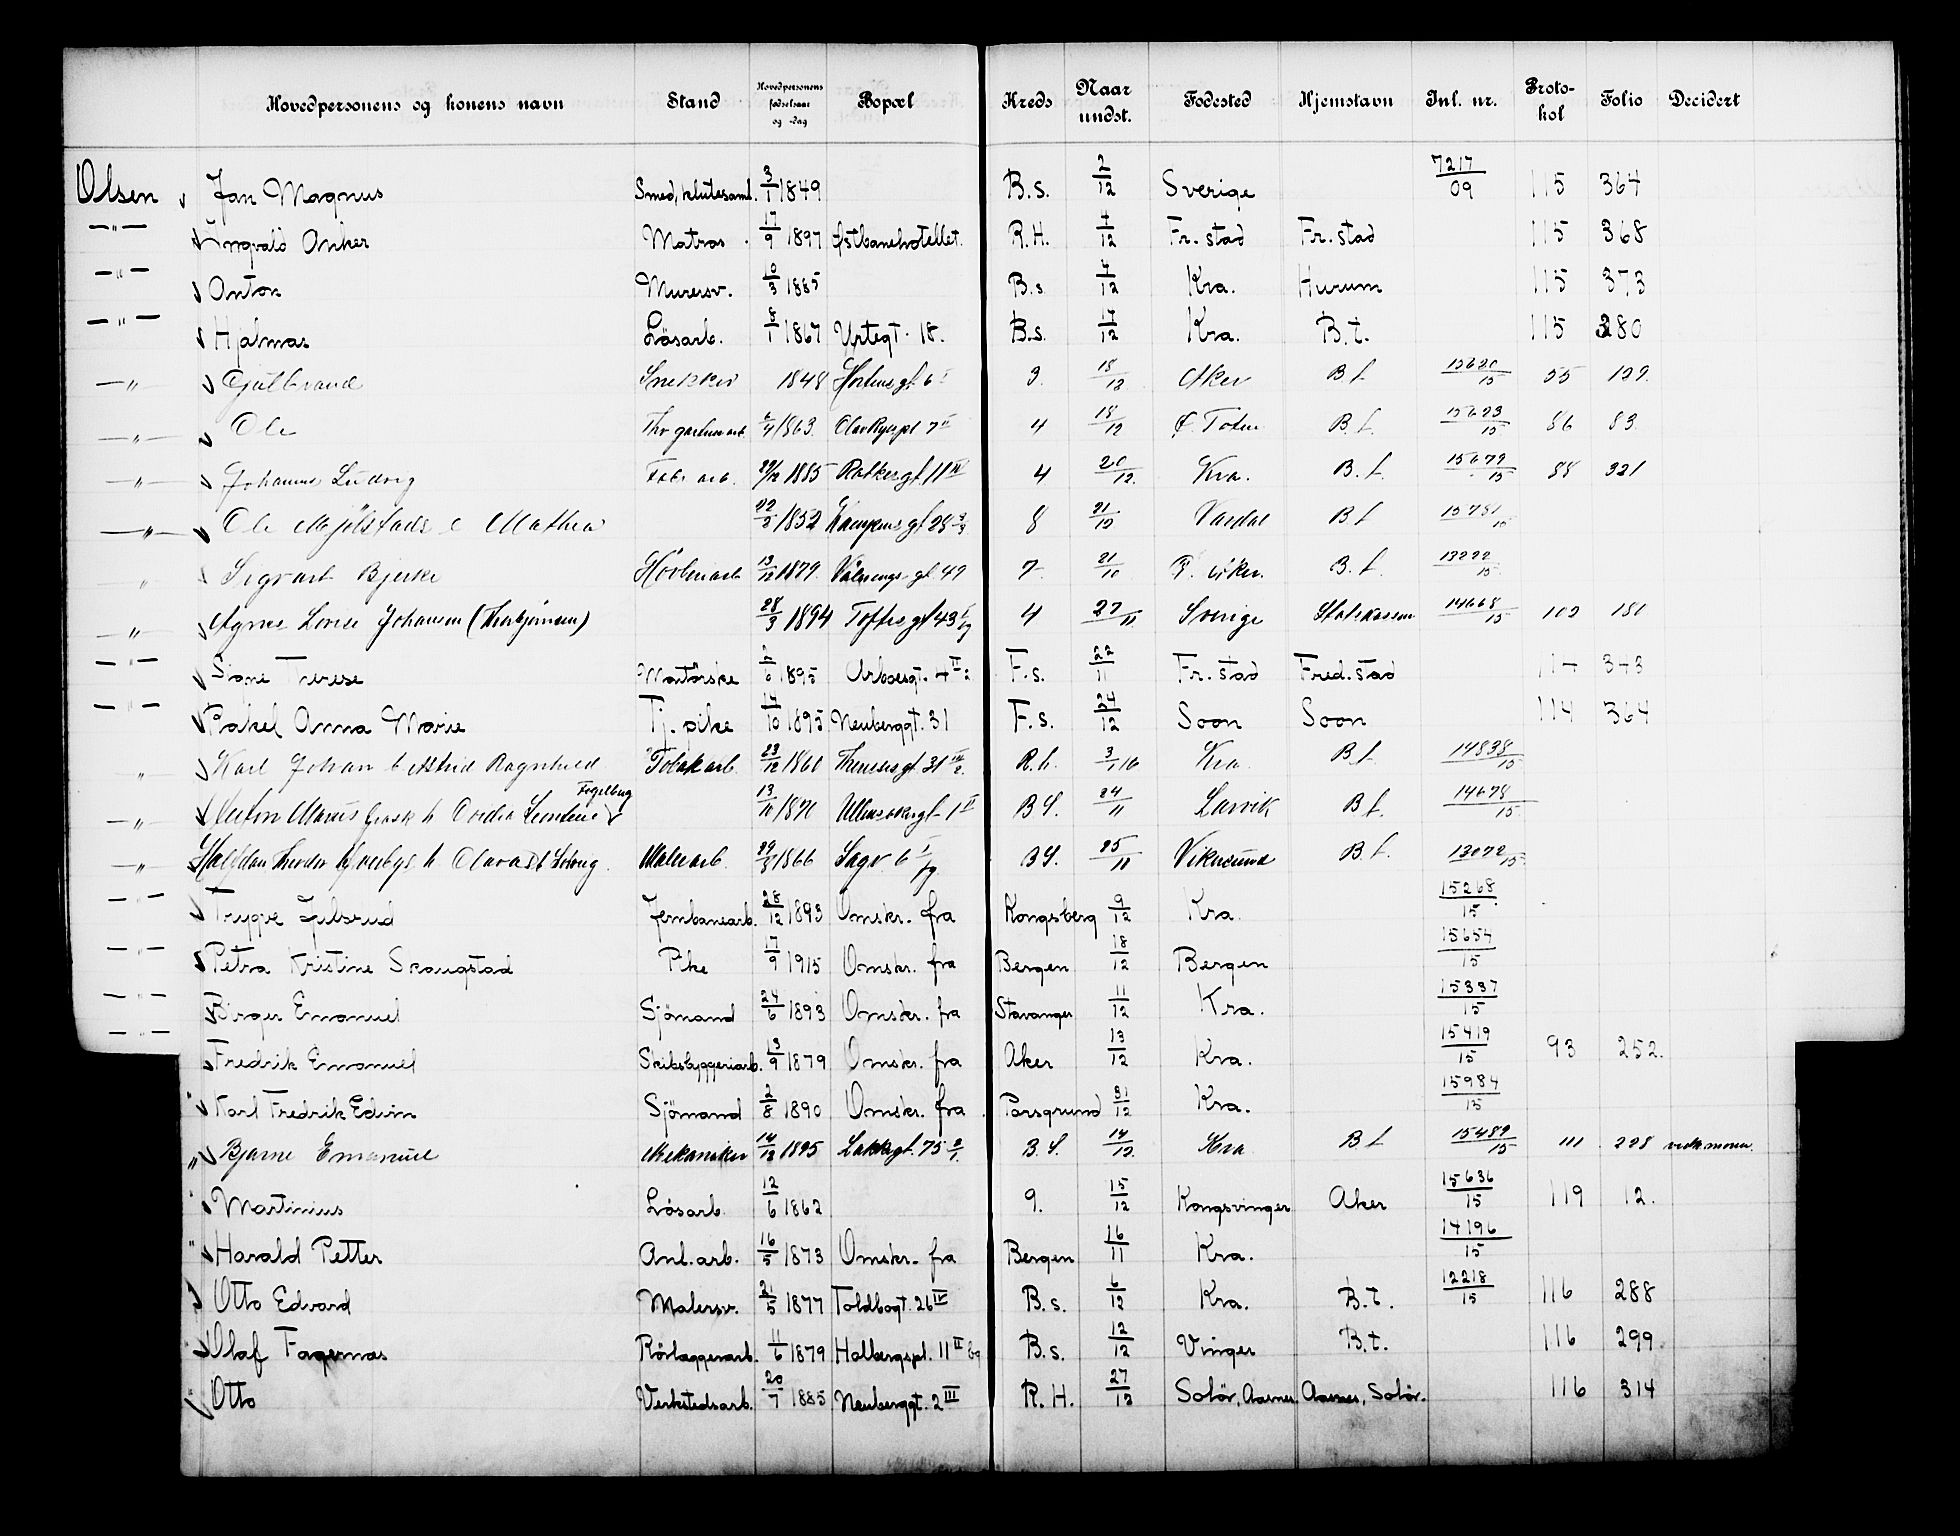 Hovedpersonens og konens navn Stand Hovedpersonens fødselsaar og -dag Bopæl Kreds Naar undst. Fødested Hjemstavn Inl. nr. Protokol Folio Decidert
Olsen Jan Magnus Smed, klutesaml. 3/1 1849 B.s. 2/12 Sverige 7217/09 115 364
—"— Ingvald Anker Matros 17/9 1897 Østbanehotellet. R.H. 4/12 Fr.stad Fr.stad 115 368
—"— Anton Murersv. 10/3 1885 B.s. 4/12 Kra. Hurum 115 373
—"— Hjalmar Løsarb. 8/1 1867 Urtegt. 18. B.s. 17/12 Kra. B.t. 115 380
—"— Gulbrand Snekker 1848 6 3. 18/12 Aker B.t. 15620/15 55 129.
—"— Ole 1863. Olav Ryespl 7 II 4 18/12 Ø. Toten B.t. 15623/15 86 83
—"— Johannes Ludvig Fabr. arb. 29/12 1885 11 IV 4 20/12. Kra. B.t. 15679/15 88 321
—"— Ole Mjølstads e Mathea 22/3 1832 8 21/12 Vardal B.t. 15781/15
" Sigvart Bjerke 13/12 1879. Vålerengs.gt 49 7 21/10 Ø. Aker. B.t. 13222/15
—"— Agnes Lovise Johansen 28/3 1894 Toftes gt 43 4 27/11 Sverige Statskassen 14668/15 102 181
—"— Signe Terese 2/6 1895 Arbosgt. 4 II F.s. 22/11 Fr.stad Fred.stad 114 343
—"— Rakel Anna Marie Tj. pike 14/10 1895 Neuberggt. 31 F.s. 24/12 Soon Soon 114 364
" Karl Johan b Astrid Ragnhild Tobak arb. 23/12 1861 Thereses gt. 31 R.h. 3/1 16 Kra B.t. 14838/15
Fogelberg
—"— Anton Marius 13/11 1871 Ullevoldsgt 1 II B.S. 24/11 Larvik B.t. 14678/15
—"— Halfdan h Olava b Solveig Malerarb. 29/3 1866 Sagv. 6 B.S. 25/11 Vikersund B.t. 13072/15
—"— Trygve Gulsrud Jernbanearb. 28/12 1893 Omskr. fra Kongsberg 9/12 Kra. 15268/15
—"— Petra Kristine Skaugstad Pike 17/9 1915 Omskr. fra Bergen 18/12 Bergen 15654/15
—"— Birger Emanuel Sjømand 24/6 1893 Omskr. fra Stavanger 11/12 Kra. 15337/15
—"— Fredrik Emanuel Skibsbyggeriarb. 13/9 1879 Omskr. fra Aker 13/12 Kra. 15419/15 93 252.
" Karl Fredrik Edvin Sjømand 2/8 1890 Omskr. fra Porsgrund 31/12 Kra. 15984/15
" Bjarne Emanuel Mekaniker 14/12 1895 Lakkegt. 75 2/1. B.S. 14/12. Kra B.t 15489/15 111 228
" Martinius Løsarb. 12/6 1862 9. 15/12 Kongsvinger Aker 15636/15 119 12.
" Harald Petter Anl.arb. 16/5 1873 Omskr. fra Bergen 16/11 Kra. 14196/15
" Otto Edvard Malersv. 21/5 1877 Toldbogt. 26 IV B.s. 6/12 Kra. B.t. 12218/15 116 288
" Olaf Fagernæs Rørlæggerarb. 11/6 1879 Holbergspl. 11 II bg B.s. 12/12 Vinger B.t. 116 299
" Otto Verkstedsarb. 20/7 1885 Neuberggt. 2 III R.H. 27/12 Solør, Aasnes. Aasnes, Solør. 116 314